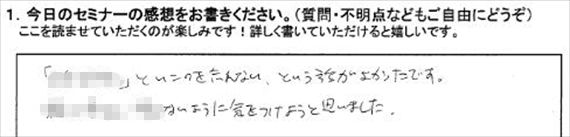 1. 今日のセミナーの感想をお書きください。(質問・不明点などもご自由にどうぞ)
ここを読ませていただくのが楽しみです!詳しく書いていただけると嬉しいです。
「 」といことを忘れない、という話がよかったです。
ないように気をつけようと思いました。